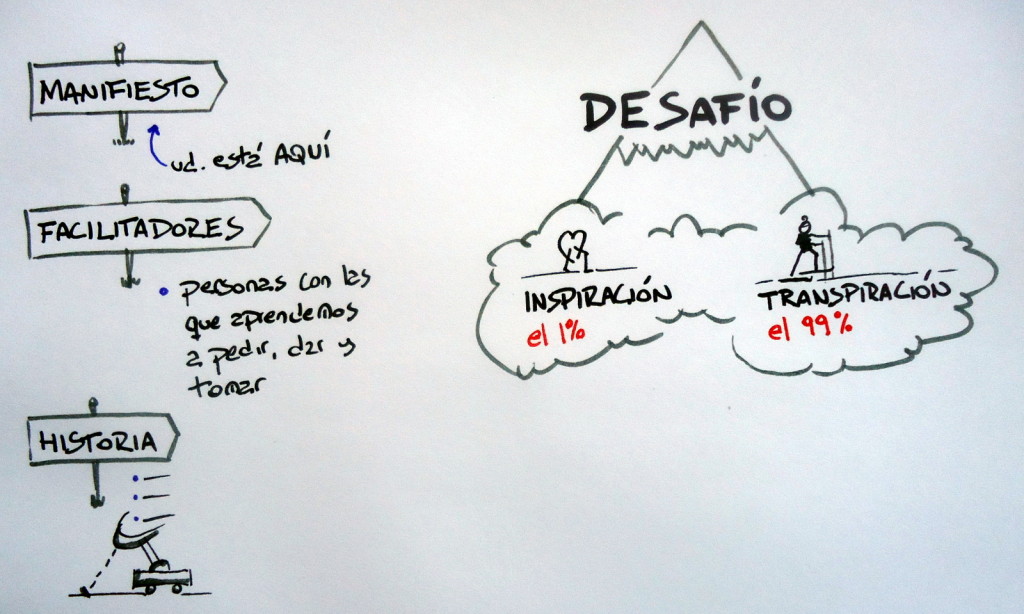 MANIFIESTO
ud. está AQUÍ
FACILITADORES
• personas con las
que aprendemos
a pedir, dar y
tomar
HISTORIA
DESAFÍO
INSPIRACIÓN
el 1%
TRANSPIRACIÓN
el 99%